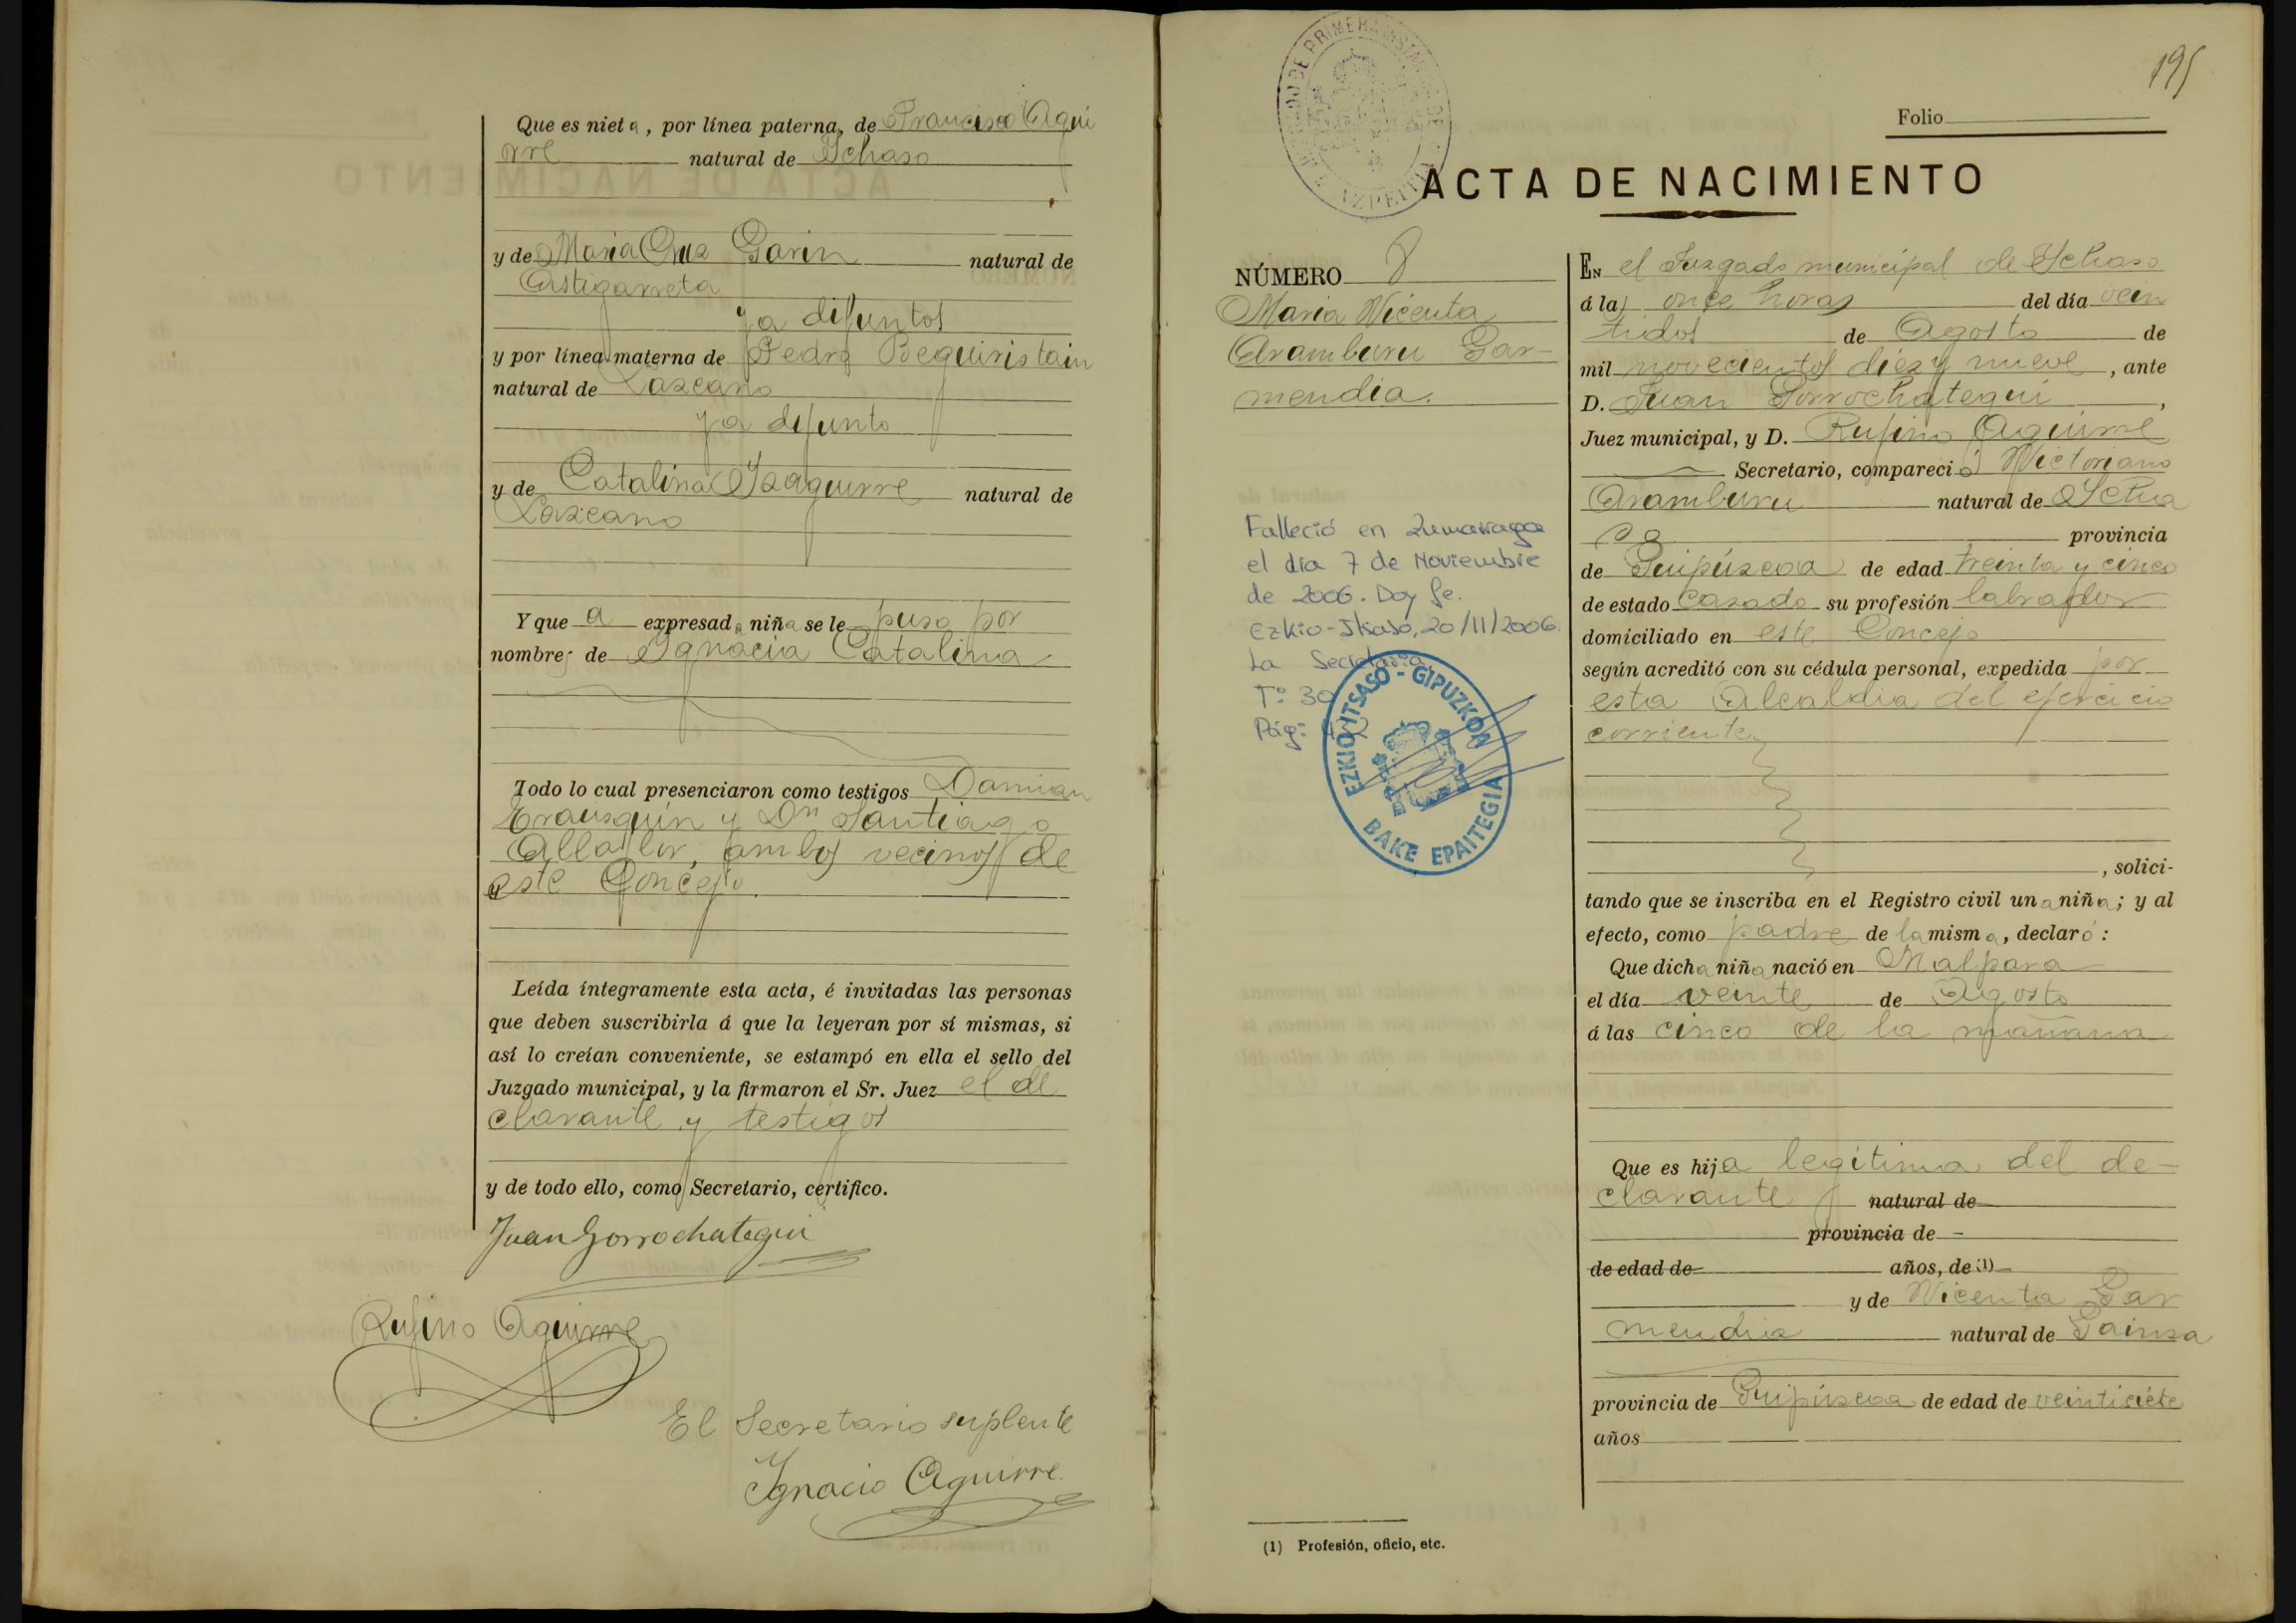 Que es nieta, por línea paterna, de Francisco Agui
rre natural de Ychaso
y de Maria Cruz Garin natural de
Astigarreta
ya difuntos
y por línea materna de Pedro Beguiristain
natural de Lazcano
ya difunto
y de Catalina Yzaguirre natural de
Lazcano
Y que a expresada niña se le puso por
nombres de Ygnacia Catalina
Todo lo cual presenciaron como testigos Damian
Erausquin y Dn Santiago
ambos vecinos de
este Concejo.
Leída íntegramente esta acta, é invitadas las personas
que deben suscribirla á que la leyeran por sí mismas, si
así lo creían conveniente, se estampó en ella el sello del
Juzgado municipal, y la firmaron el Sr. Juez el de
clarante y testigos
y de todo ello, como Secretario, certifico.
Juan Gorrochategui
Rufino Aguirre
El Secretario suplente
Ygnacio Aguirre
195
Folio
JUZGADO DE PRIMERA INSTANCIA DE AZPEITIA
ACTA DE NACIMIENTO
NÚMERO 8
Maria Vicenta
Aramburu Gar-
mendia.
Falleció en Zumarraga
el día 7 de Noviembre
de 2006. Doy fe.
Ezkio-Itsaso, 20/11/2006.
La Secretaria,
Tº: 30
Pág:
EZKIO ITSASO - GIPUZKOA
BAKE EPAITEGIA
EN el Juzgado municipal de Ychaso
á las once horas del día vein
tidos de Agosto de
mil novecientos diez y nueve, ante
D. Juan Gorrochategui,
Juez municipal, y D. Rufino Aguirre
Secretario, compareció Victoriano
Aramburu natural de Ycha
so provincia
de Guipúzcoa de edad treinta y cinco
de estado casado su profesión labrador
domiciliado en este Concejo
según acreditó con su cédula personal, expedida por
esta Alcaldia del ejercicio
corriente
, solici-
tando que se inscriba en el Registro civil una niña; y al
efecto, como padre de la misma, declaró:
Que dicha niña nació en Malpara
el día veinte de Agosto
á las cinco de la mañana
Que es hija legitima del de-
clarante natural de
provincia de
de edad de años, de (1)
y de Vicenta Gar
mendia natural de Gainza
provincia de Guipúzcoa de edad de veintisiete
años
(1) Profesión, oficio, etc.